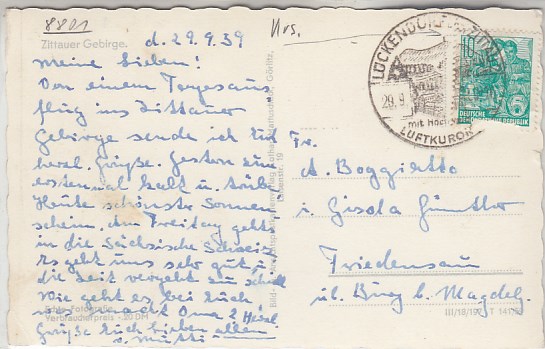 8801
Zittauer Gebirge.
d. 29.9.59
Meine Lieben!
Von einem Tagesaus
flug ins Zittauer
Gebirge sende ich Euch
herzl. Grüße. Gestern zum
erstenmal kalt u. trübe
Heute schönster Sonnen
schein. Am Freitag geht's
in die Sächsische Schweiz
Es geht uns sehr gut,
die Zeit vergeht zu schnell
Wie geht es bei Euch
was macht Oma? Herzl.
Grüße Euch lieben allen
v. Mutti
Echte Fotografie
Verbraucherpreis -.20 DM
LÜCKENDORF
29.9.
mit Hoch
LUFTKURORT
10
5
DEUTSCHE
DEMOKRATISCHE REPUBLIK
Fr.
A. Boggietto
b. Gisela Günther
Friedensau
üb. Burg b. Magdeb.
III/18/197